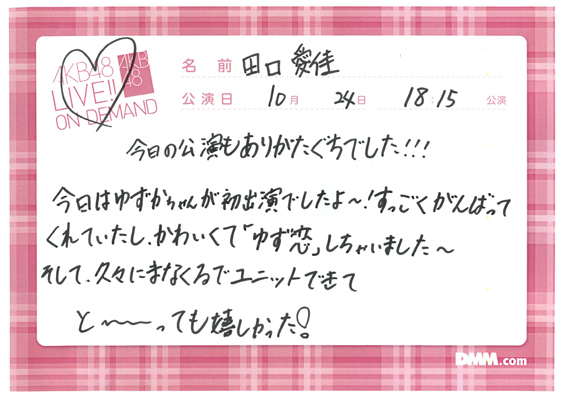 AKB48
LIVE!!
ON DEMAND
AKB
48
名前 田口 愛佳
公演日 10月 24日 18:15 公演
今日の公演もありがたぐちでした!!!
今日はゆずかちゃんが初出演でしたよ〜!すっごくがんばって
くれていたし、かわいくて「ゆず恋」しちゃいました〜
そして、久々にまなくるでユニットできて
と〜〜っても嬉しかった!
DMM.com